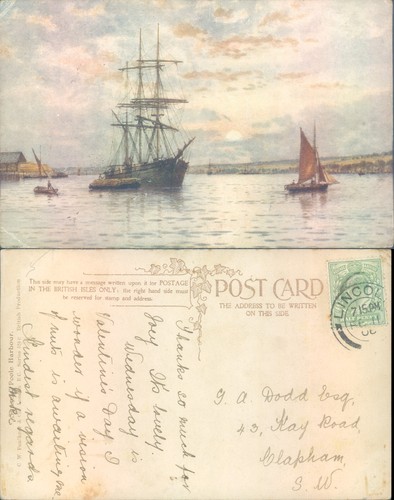 This side may have a message written upon it for POSTAGE
IN THE BRITISH ISLES ONLY: the right hand side must
be reserved for stamp and address.
POST CARD
THE ADDRESS TO BE WRITTEN
ON THIS SIDE
Harbour
7 15 PM
Thanks so much for
Joy. It's lovely.
Wednesday is
Valentine's Day. I
wonder if a vision
of nuts is awaiting me.
Kindest regards
G. A. Dodd Esq.
43, Kay Road,
Clapham,
S.W.